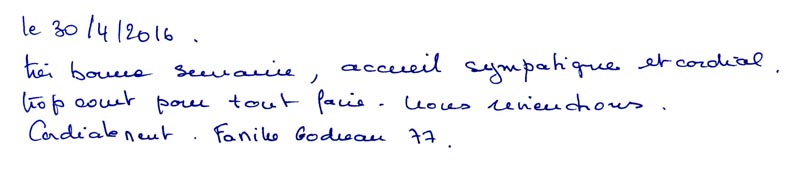 le 30/4/2016.
très bonne semaine, accueil sympatique et cordial.
trop court pour tout faire. Nous reviendrons.
Cordialement. Famille Godreau 77.